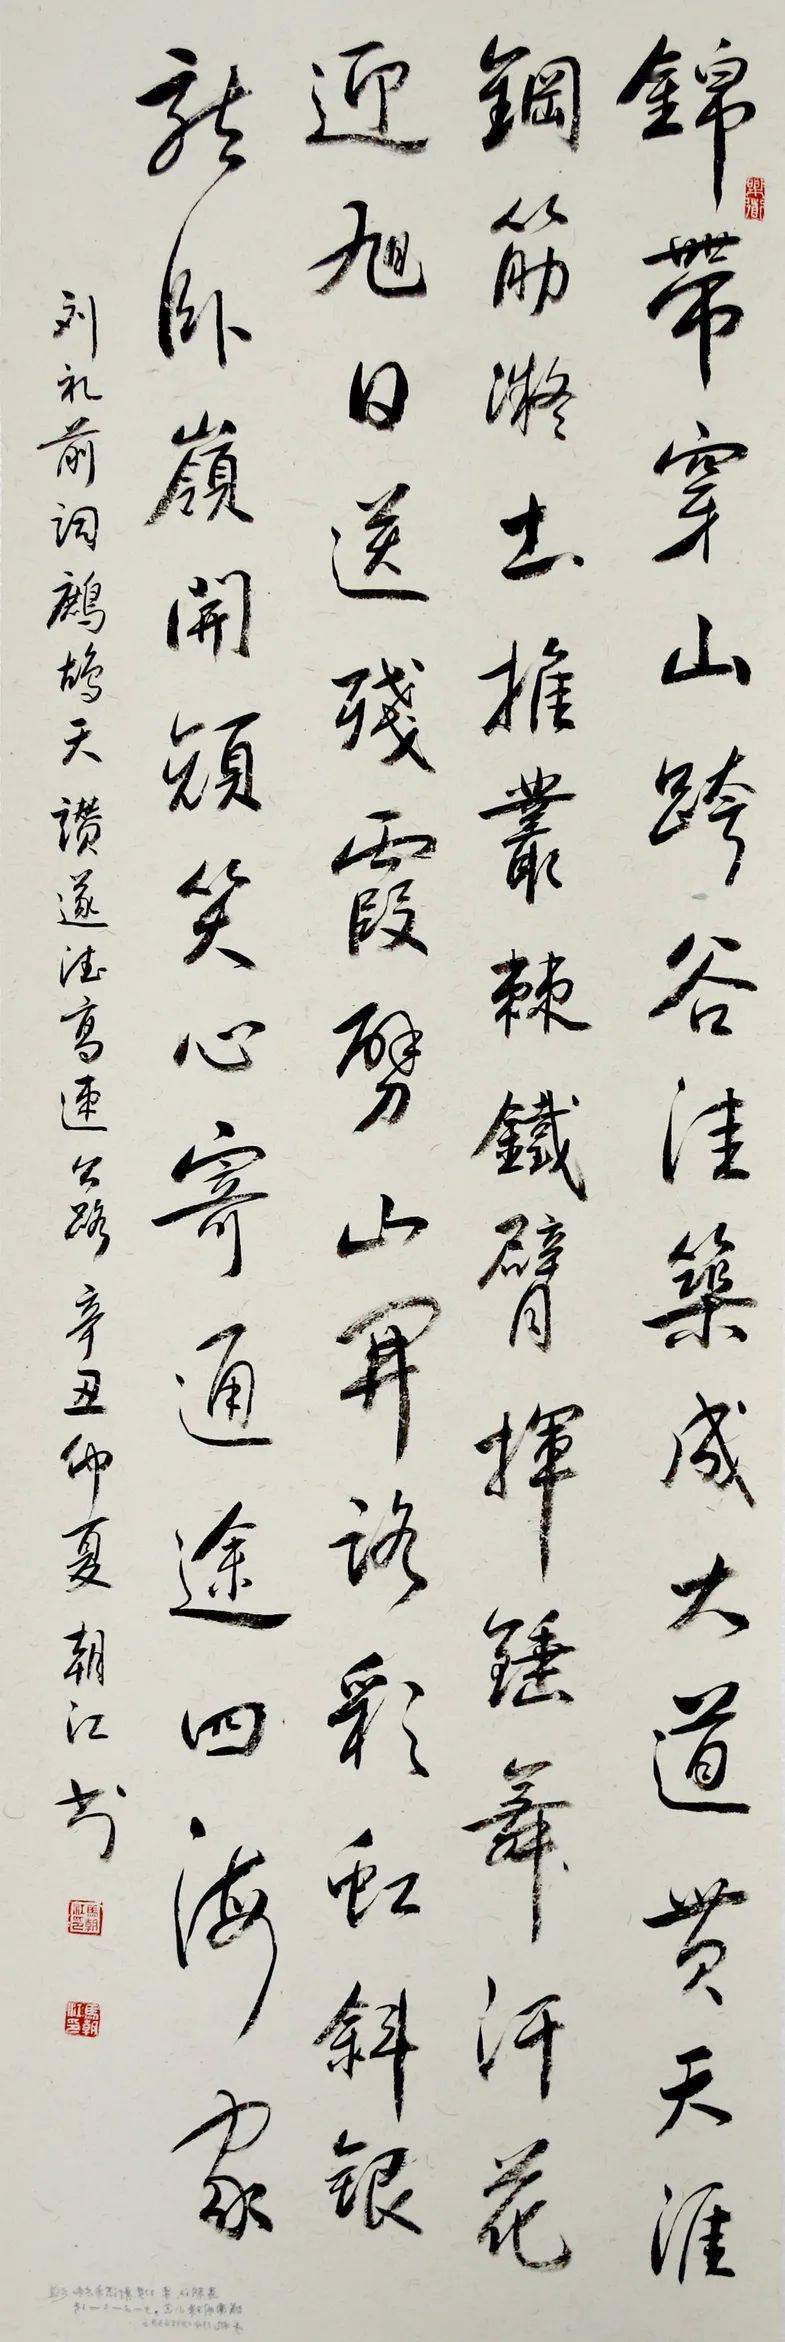 錦帶穿山跨谷洼築成大道贯天涯
鋼筋凝土推叢棘鐵臂揮錘舞汗花
迎旭日送殘霞劈山開路彩虹斜銀
龍卧嶺開顏笑心寄通途四海家
刘礼前词鷓鴣天讃遂德高速公路辛丑仲夏朝江书
馬朝江印
馬朝江印